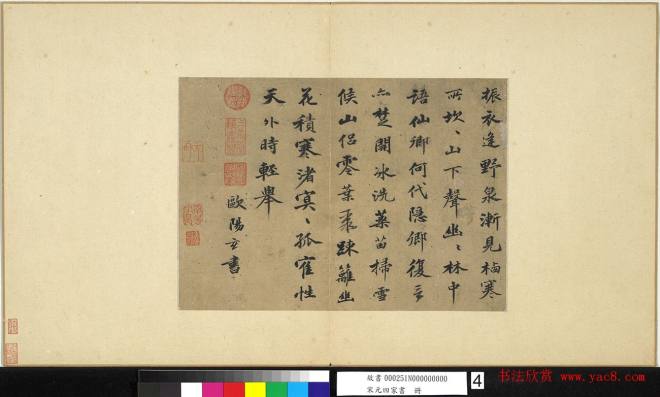 振衣逢野泉漸見栖寒
所坎〻山下聲幽〻林中
語仙鄉何代隱鄉復言
亦楚開冰洗藥苗掃雪
候山侣零葉聚踈籬幽
花積寒渚寞〻孤隺性
天外時輕舉
歐陽玄書
故書 000251N000000000
宋元四家書 冊
4
书法欣赏
www.yac8.com